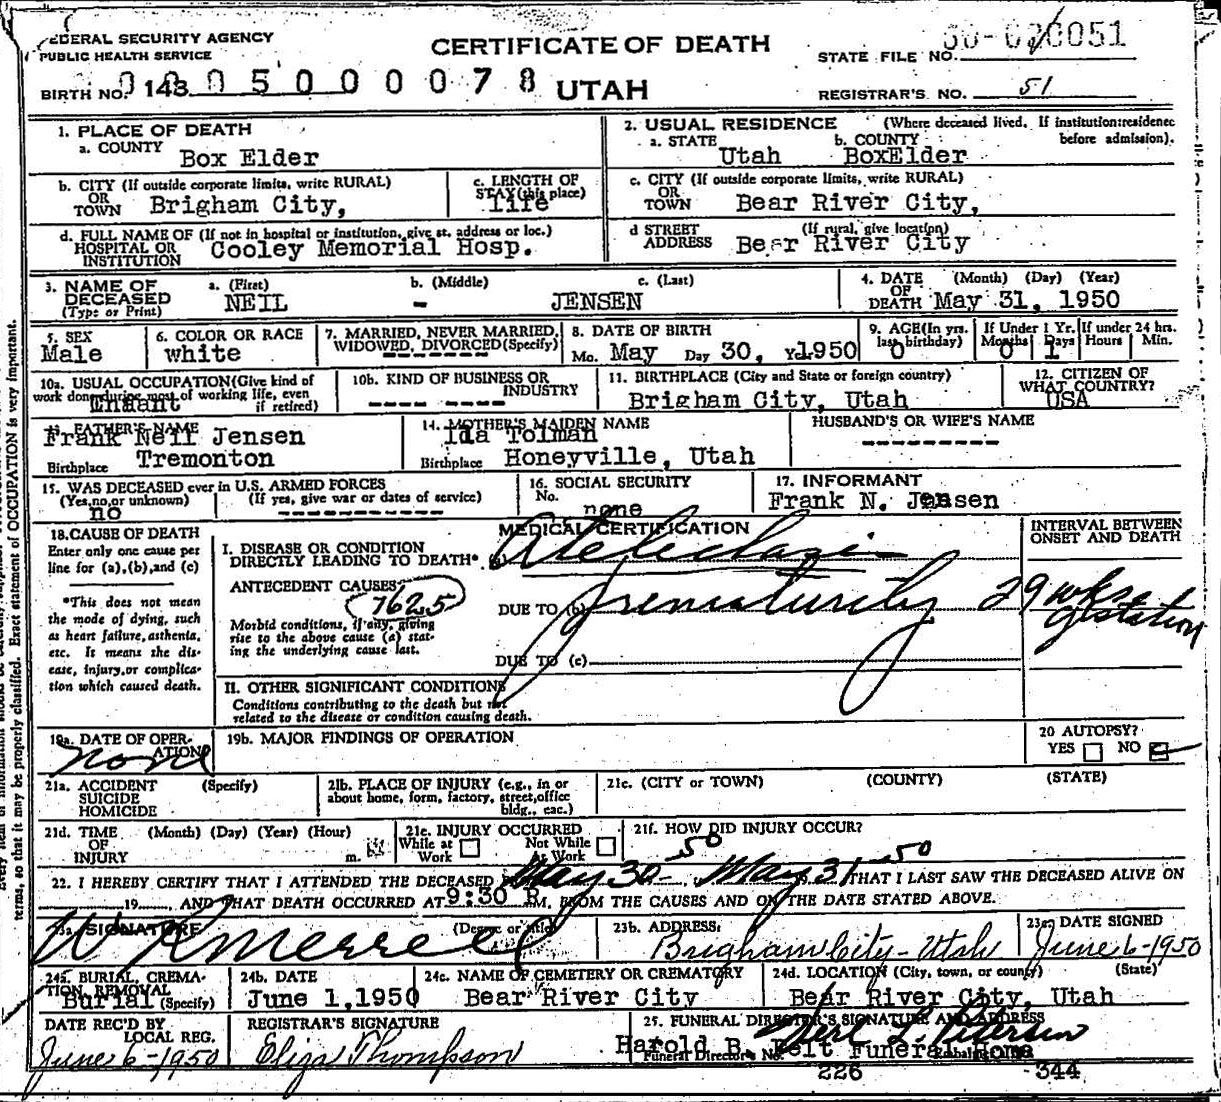 FEDERAL SECURITY AGENCY
PUBLIC HEALTH SERVICE
CERTIFICATE OF DEATH
UTAH
STATE FILE NO.
BIRTH NO. 143 0 5 0 0 0 0 7 8
REGISTRAR'S NO. 51
1. PLACE OF DEATH
a. COUNTY Box Elder
2. USUAL RESIDENCE (Where deceased lived. If institution: residence before admission).
a. STATE Utah b. COUNTY BoxElder
b. CITY (If outside corporate limits, write RURAL) OR TOWN Brigham City,
c. LENGTH OF STAY (this place) life
c. CITY (If outside corporate limits, write RURAL) OR TOWN Bear River City,
d. FULL NAME OF (If not in hospital or institution, give st. address or loc.) HOSPITAL OR INSTITUTION Cooley Memorial Hosp.
d STREET ADDRESS (If rural, give location) Bear River City
3. NAME OF DECEASED (Type or Print)
a. (First) NEIL
b. (Middle) -
c. (Last) JENSEN
4. DATE OF DEATH (Month) (Day) (Year) May 31, 1950
5. SEX Male
6. COLOR OR RACE white
7. MARRIED, NEVER MARRIED, WIDOWED, DIVORCED (Specify) -------
8. DATE OF BIRTH Mo. May Day 30, Yr. 1950
9. AGE (In yrs. last birthday) 0
If Under 1 Yr. Months 0 Days 1
If under 24 hrs. Hours Min.
10a. USUAL OCCUPATION (Give kind of work done during most of working life, even if retired) Infant
10b. KIND OF BUSINESS OR INDUSTRY ---- ----
11. BIRTHPLACE (City and State or foreign country) Brigham City, Utah
12. CITIZEN OF WHAT COUNTRY? USA
13. FATHER'S NAME Frank Neil Jensen
Birthplace Tremonton
14. MOTHER'S MAIDEN NAME Ida Tolman
Birthplace Honeyville, Utah
HUSBAND'S OR WIFE'S NAME ---------
15. WAS DECEASED ever in U.S. ARMED FORCES
(Yes, no, or unknown) no (If yes, give war or dates of service) ----------
16. SOCIAL SECURITY No. none
17. INFORMANT Frank N. Jensen
18. CAUSE OF DEATH
Enter only one cause per line for (a), (b), and (c)
*This does not mean the mode of dying, such as heart failure, asthenia, etc. It means the disease, injury, or complication which caused death.
MEDICAL CERTIFICATION
INTERVAL BETWEEN ONSET AND DEATH
I. DISEASE OR CONDITION DIRECTLY LEADING TO DEATH* (a) Atelectasis
ANTECEDENT CAUSES
7625
Morbid conditions, if any, giving rise to the above cause (a) stating the underlying cause last.
DUE TO (b) Prematurity 29 wks gestation
DUE TO (c)
II. OTHER SIGNIFICANT CONDITIONS
Conditions contributing to the death but not related to the disease or condition causing death.
19a. DATE OF OPERATION none
19b. MAJOR FINDINGS OF OPERATION
20 AUTOPSY? YES NO
21a. ACCIDENT SUICIDE HOMICIDE (Specify)
21b. PLACE OF INJURY (e.g., in or about home, form, factory, street, office bldg., eac.)
21c. (CITY or TOWN) (COUNTY) (STATE)
21d. TIME OF INJURY (Month) (Day) (Year) (Hour) m.
21e. INJURY OCCURRED While at Work Not While At Work
21f. HOW DID INJURY OCCUR?
22. I HEREBY CERTIFY THAT I ATTENDED THE DECEASED May 30-50, May 31-50 THAT I LAST SAW THE DECEASED ALIVE ON
19 , AND THAT DEATH OCCURRED AT 9:30 P M, FROM THE CAUSES AND ON THE DATE STATED ABOVE.
23a. SIGNATURE (Degree or title) W R Merrell
23b. ADDRESS: Brigham City - Utah
23c. DATE SIGNED June 6-1950
24a. BURIAL, CREMATION, REMOVAL (Specify) Burial
24b. DATE June 1, 1950
24c. NAME OF CEMETERY OR CREMATORY Bear River City
24d. LOCATION (City, town, or county) (State) Bear River City, Utah
DATE REC'D BY LOCAL REG. June 6-1950
REGISTRAR'S SIGNATURE Eliza Thompson
25. FUNERAL DIRECTOR'S SIGNATURE AND ADDRESS
Harold B. Felt Funeral Home
Funeral Director's No. 226 344
terms, so that it may be properly classified. Exact statement of OCCUPATION is very important.